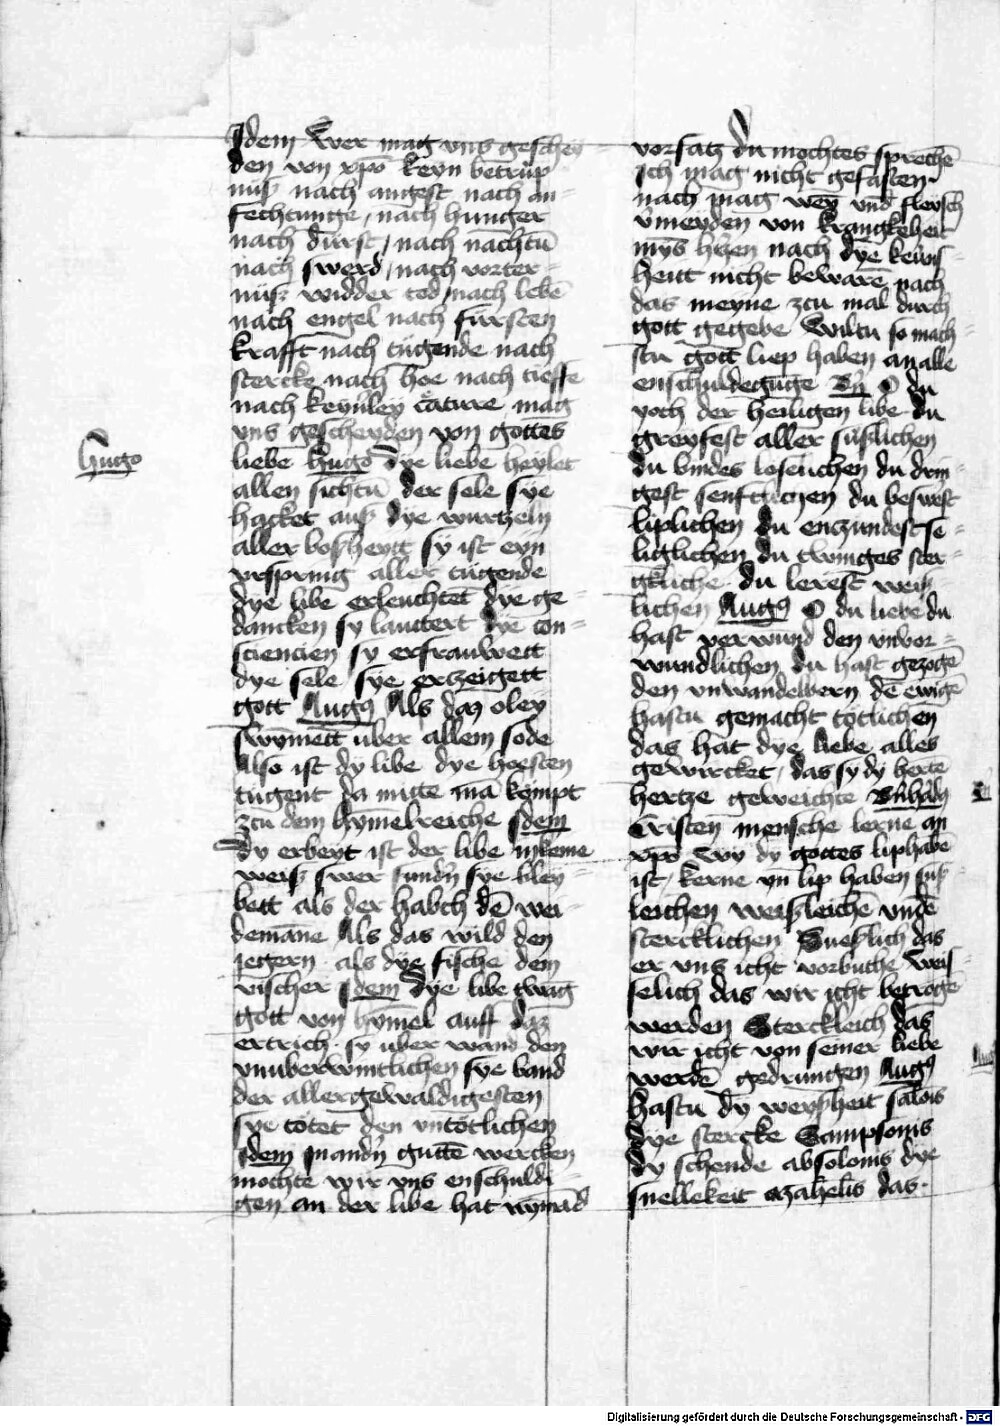 Idem Wer mag vns geschey
den von xpo keyn betrup
nuß nach angest nach an
fechtunge / nach hunger
nach durst / nach nachtū
nach swerd / nach vorter
nuß widder tod / nach lebē
nach engel nach fursten
krafft nach tugende nach
stercke nach hoe nach tieffe
nach keynley c̄ature mag
vns gescheyden von gottes
liebe Hugo Dye liebe heylet
allen sichtū der sele sye
hacket auß dye wurtzeln
aller boßheytt sy ist eyn
vrsprung aller tugende
dye libe erleuchtet dye ge
dancken sy lauttert dye con
sciencien sy erfrauwett
dye sele sye ertzeigett
gott Augꝰ Als daz oley
swymett uber allem sode
Also ist dy libe dye hoesten
tugent da mitte mā kompt
zcu dem hymelreiche Idem
Dy erbeyt ist der libe in keme
weiß swer sundn̄ sye bley
bett als der habch dē wei
demane Als das wild den
jegern als dye fische dem
vischer Idem Dye libe twāg
gott von hymel auff daz
ertrich sy uber wand den
vnuberwintlichen sye band
der allergewaldigesten
sye totet den vntotlichen
Idem mandn̄ guttē wercken
mochte wir vns enschuldi
gen an der libe hat nymād
Hugo
vorsatz du mochtes sprechē
Ich mag nicht gefasten
nach mag wey vnd fleysch
v̄meyden von krangkeheit
myns h̄en nach dye keuws
heut nicht bewarē nach
das meyne zcu mal durch
gott gegebe Wiltu so mach
stu gott liep haben an alle
enschuldegūge O du
yoch der heiligen libe du
greyfest aller sußlichen
du bindes loselichen du drin
gest senftlichen du beswest
liplichen du enczundest se
liglichen du twinges ster
gkliche du lerest weiß
lichen Augꝰ O du liebe du
hast verwund den vnvor
wundlichen du hast gezogē
den vnwandelbern dē ewigē
hastu gemacht totlichen
das hat dye liebe alles
gewircket / das sy dy herte
hertze geweichte
Cristen mensche lerne an
xpo wy dy gottes liphabē
ist / kerne yn lip haben suß
leichen weißleichē vnde
stercklichen Sueßlich das
er vns icht vorbuthe Weis
selich das wir icht betroge
werden Sterckleich das
wir icht von seiner liebe
werdē gedrungen Augꝰ
hastu dy weyßheit salōis
dye stercke Sampsonis
dy schende absolonis dye
snellekeit azahelis das
Digitalisierung gefördert durch die Deutsche Forschungsgemeinschaft - DFG